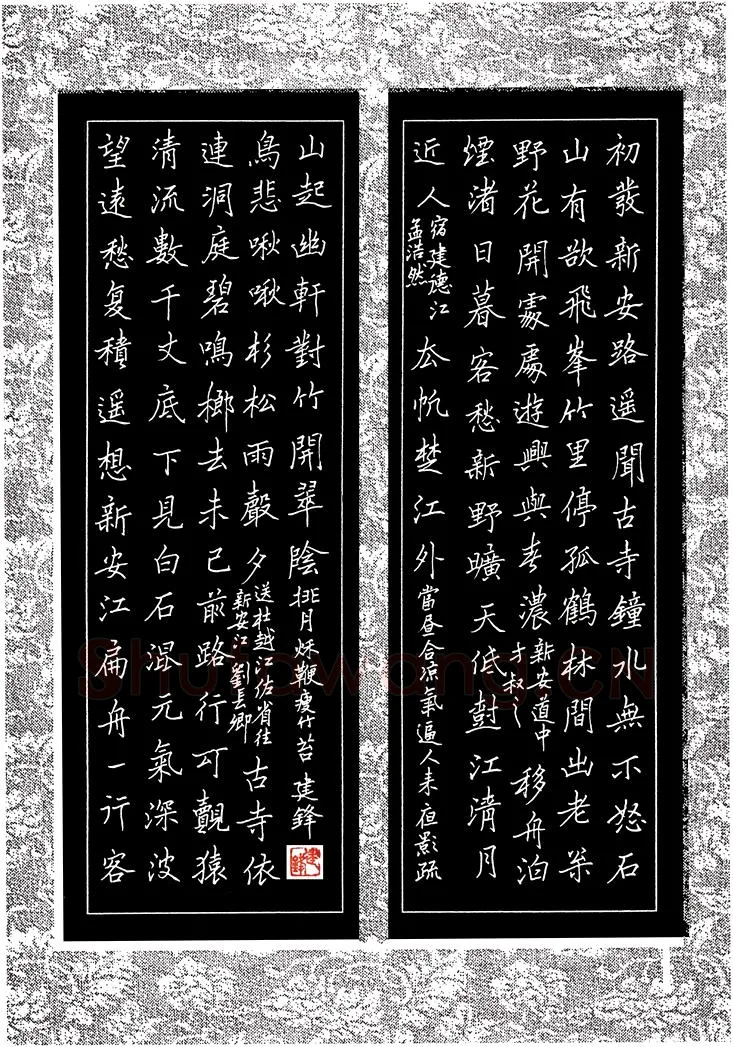 初發新安路遥聞古寺鐘水無不怒石
山有欲飛峯竹里停孤鶴林間出老
野花開處處遊興與春濃新安道中才叔移舟泊
煙渚日暮客愁新野曠天低樹江清月
近人宿建德江孟浩然去帆楚江外當昼合凉氣逼人来夜影疏
望遠愁复積遥想新安江扁舟一行客
清流數千丈底下見白石混元氣深波
連洞庭碧鳴榔去未已前路行可覿猿
鳥悲啾啾杉松雨聲夕送杜越江佐省往新安江劉長卿古寺依
山起幽軒對竹開翠陰排月秋鞭瘦竹苔建鋒
建鋒
Shufawang.CN